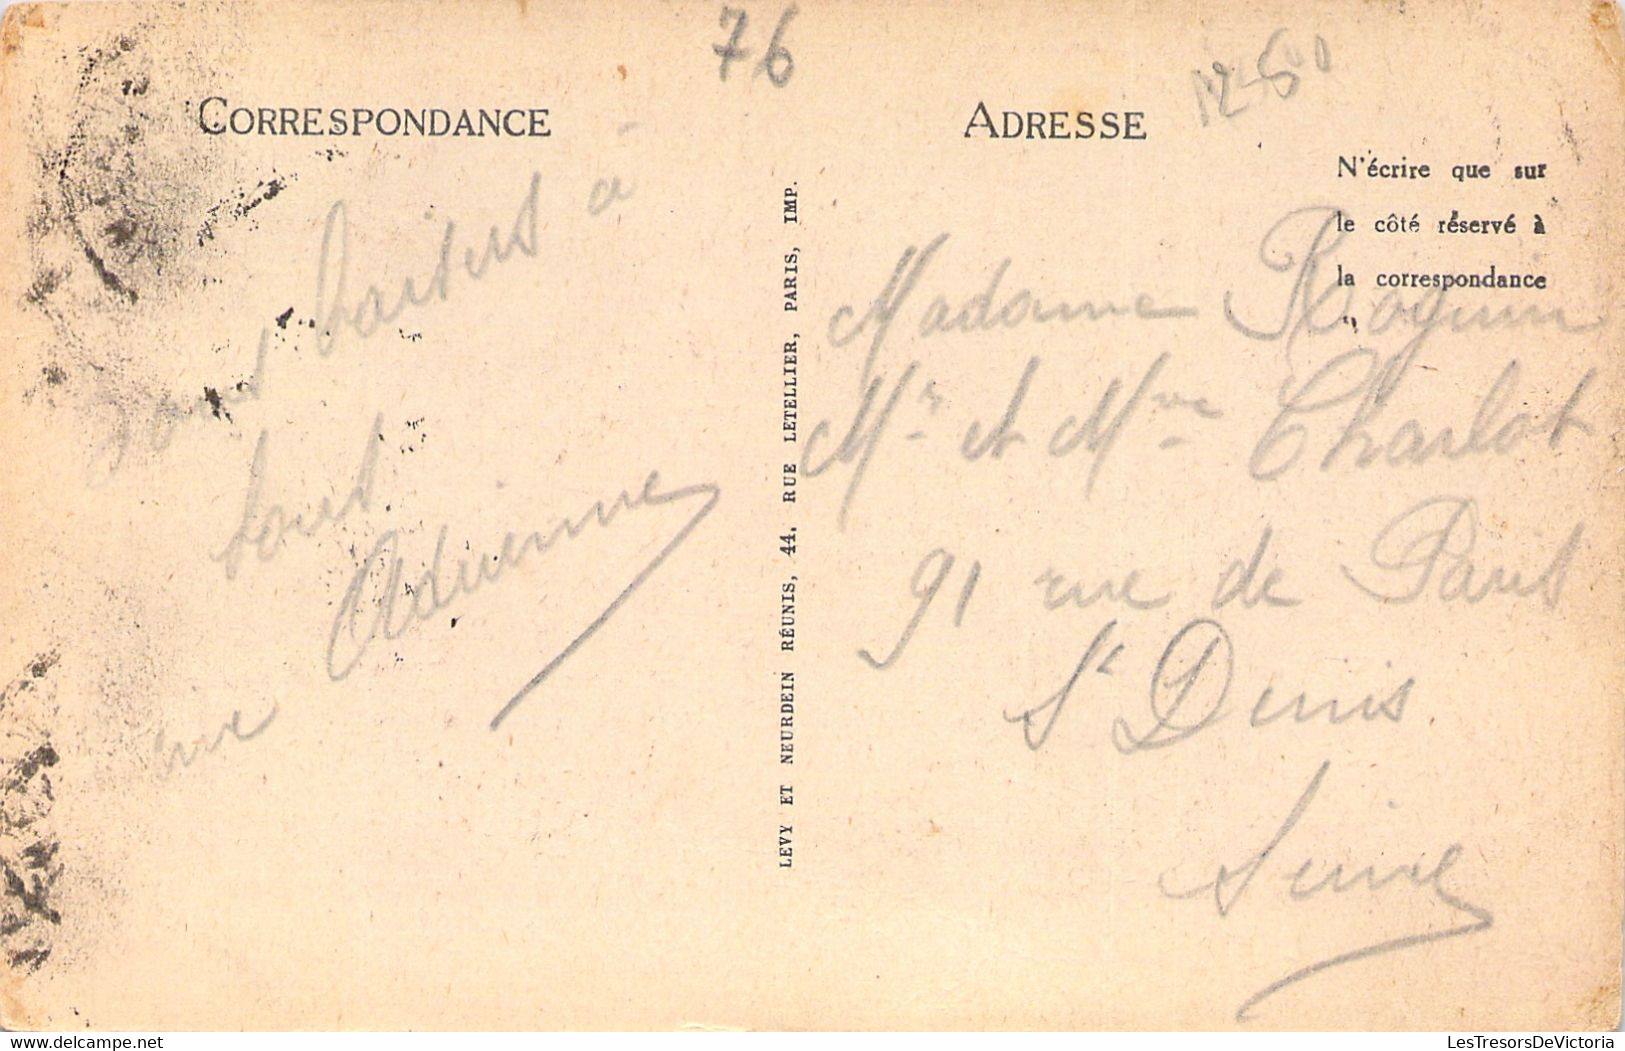 76
12-6
CORRESPONDANCE
ADRESSE
N'écrire que sur
le côté réservé à
la correspondance
baisers à
tous
Adrienne
LEVY ET NEURDEIN RÉUNIS, 44, RUE LETELLIER, PARIS, IMP.
Madame Roguin
Mr et Mme Charlot
91 rue de Paris
St Denis
Seine
delcampe.net
LesTresorsDeVictoria